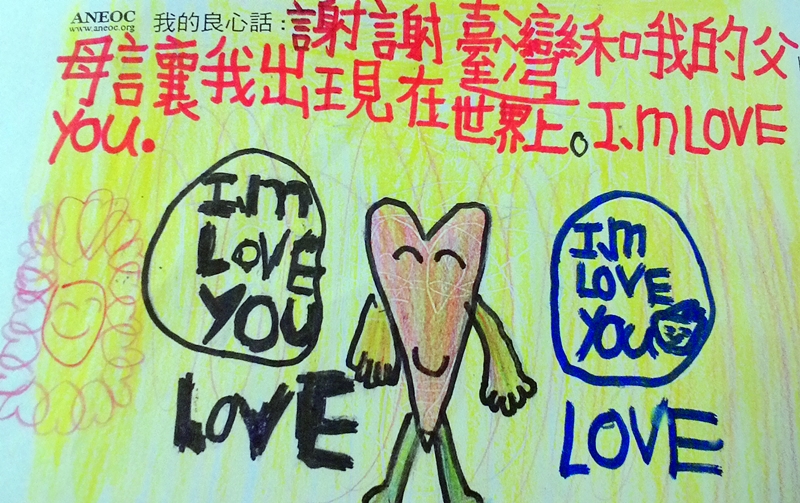 ANEOC
www.aneoc.org
我的良心話：謝謝臺灣和我的父
母讓我出現在世界上。I.m LOVE
YOU.
I.m
LOVE
YOU
LOVE
I.m
LOVE
YOU
LOVE